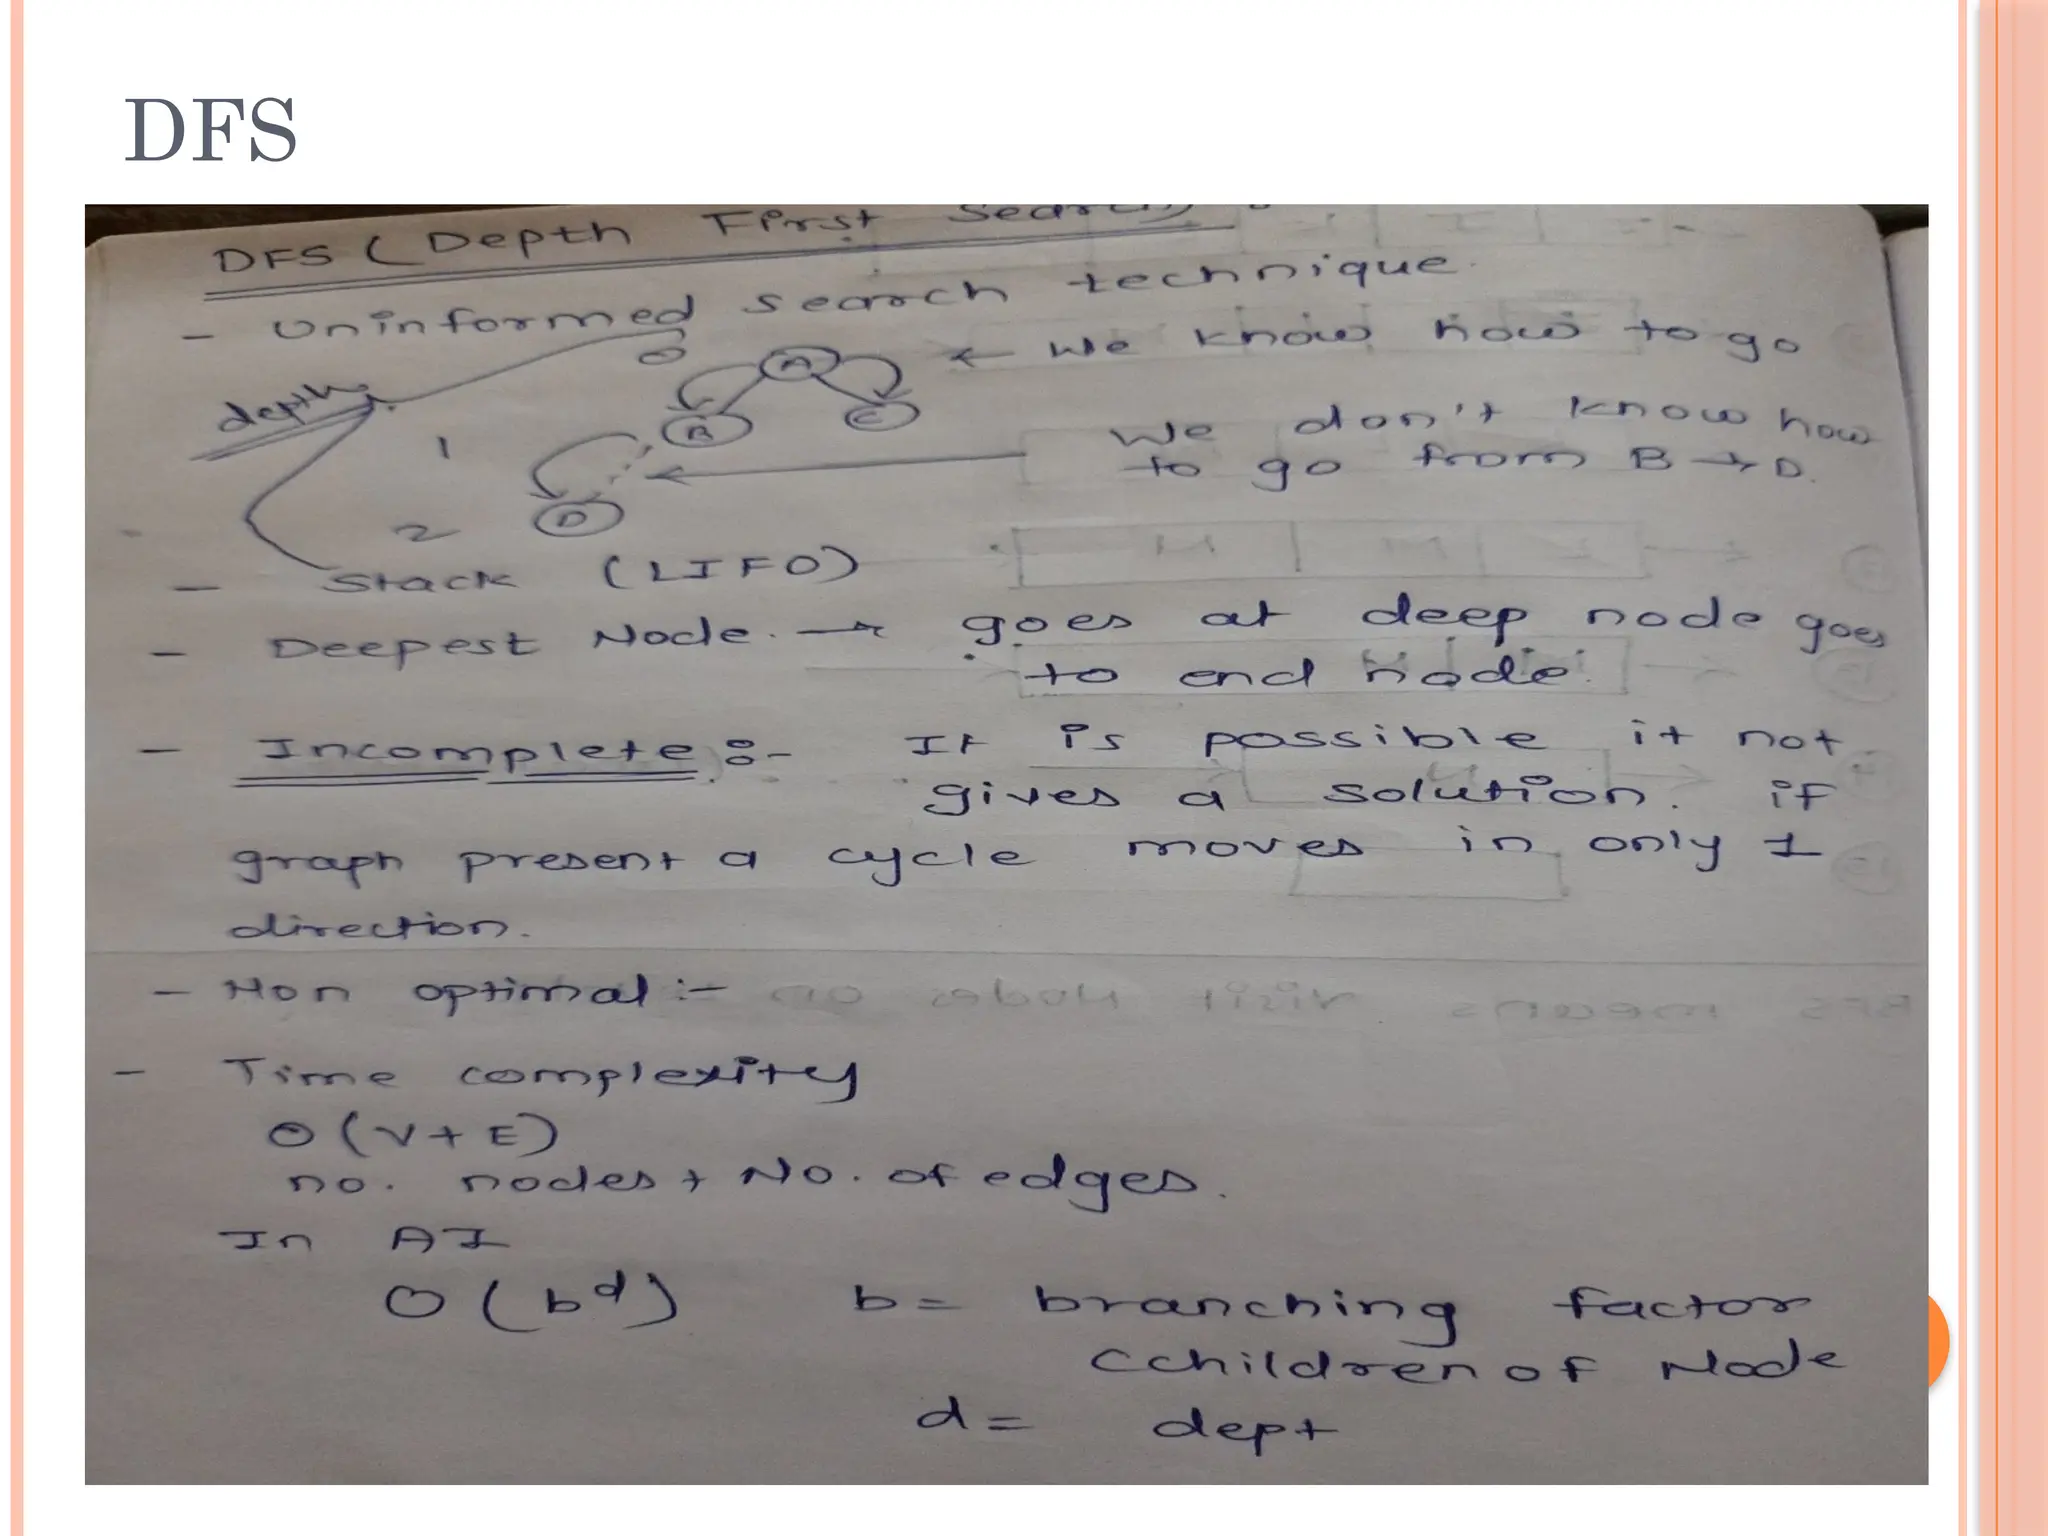 DFS
DFS ( Depth First Search) :
- Uninformed search technique.
depth
0 A ← We know how to go
1 B C We don't know how
to go from B → D.
2 D
- Stack (LIFO)
- Deepest Node. → goes at deep node goes
to end node.
- Incomplete :- It is possible it not
gives a solution. if
graph present a cycle moves in only 1
direction.
- Non optimal :-
- Time complexity
O (V+E)
no. nodes + No. of edges.
In AI
O ( b^d ) b = branching factor
Cchildren of Node
d = dept